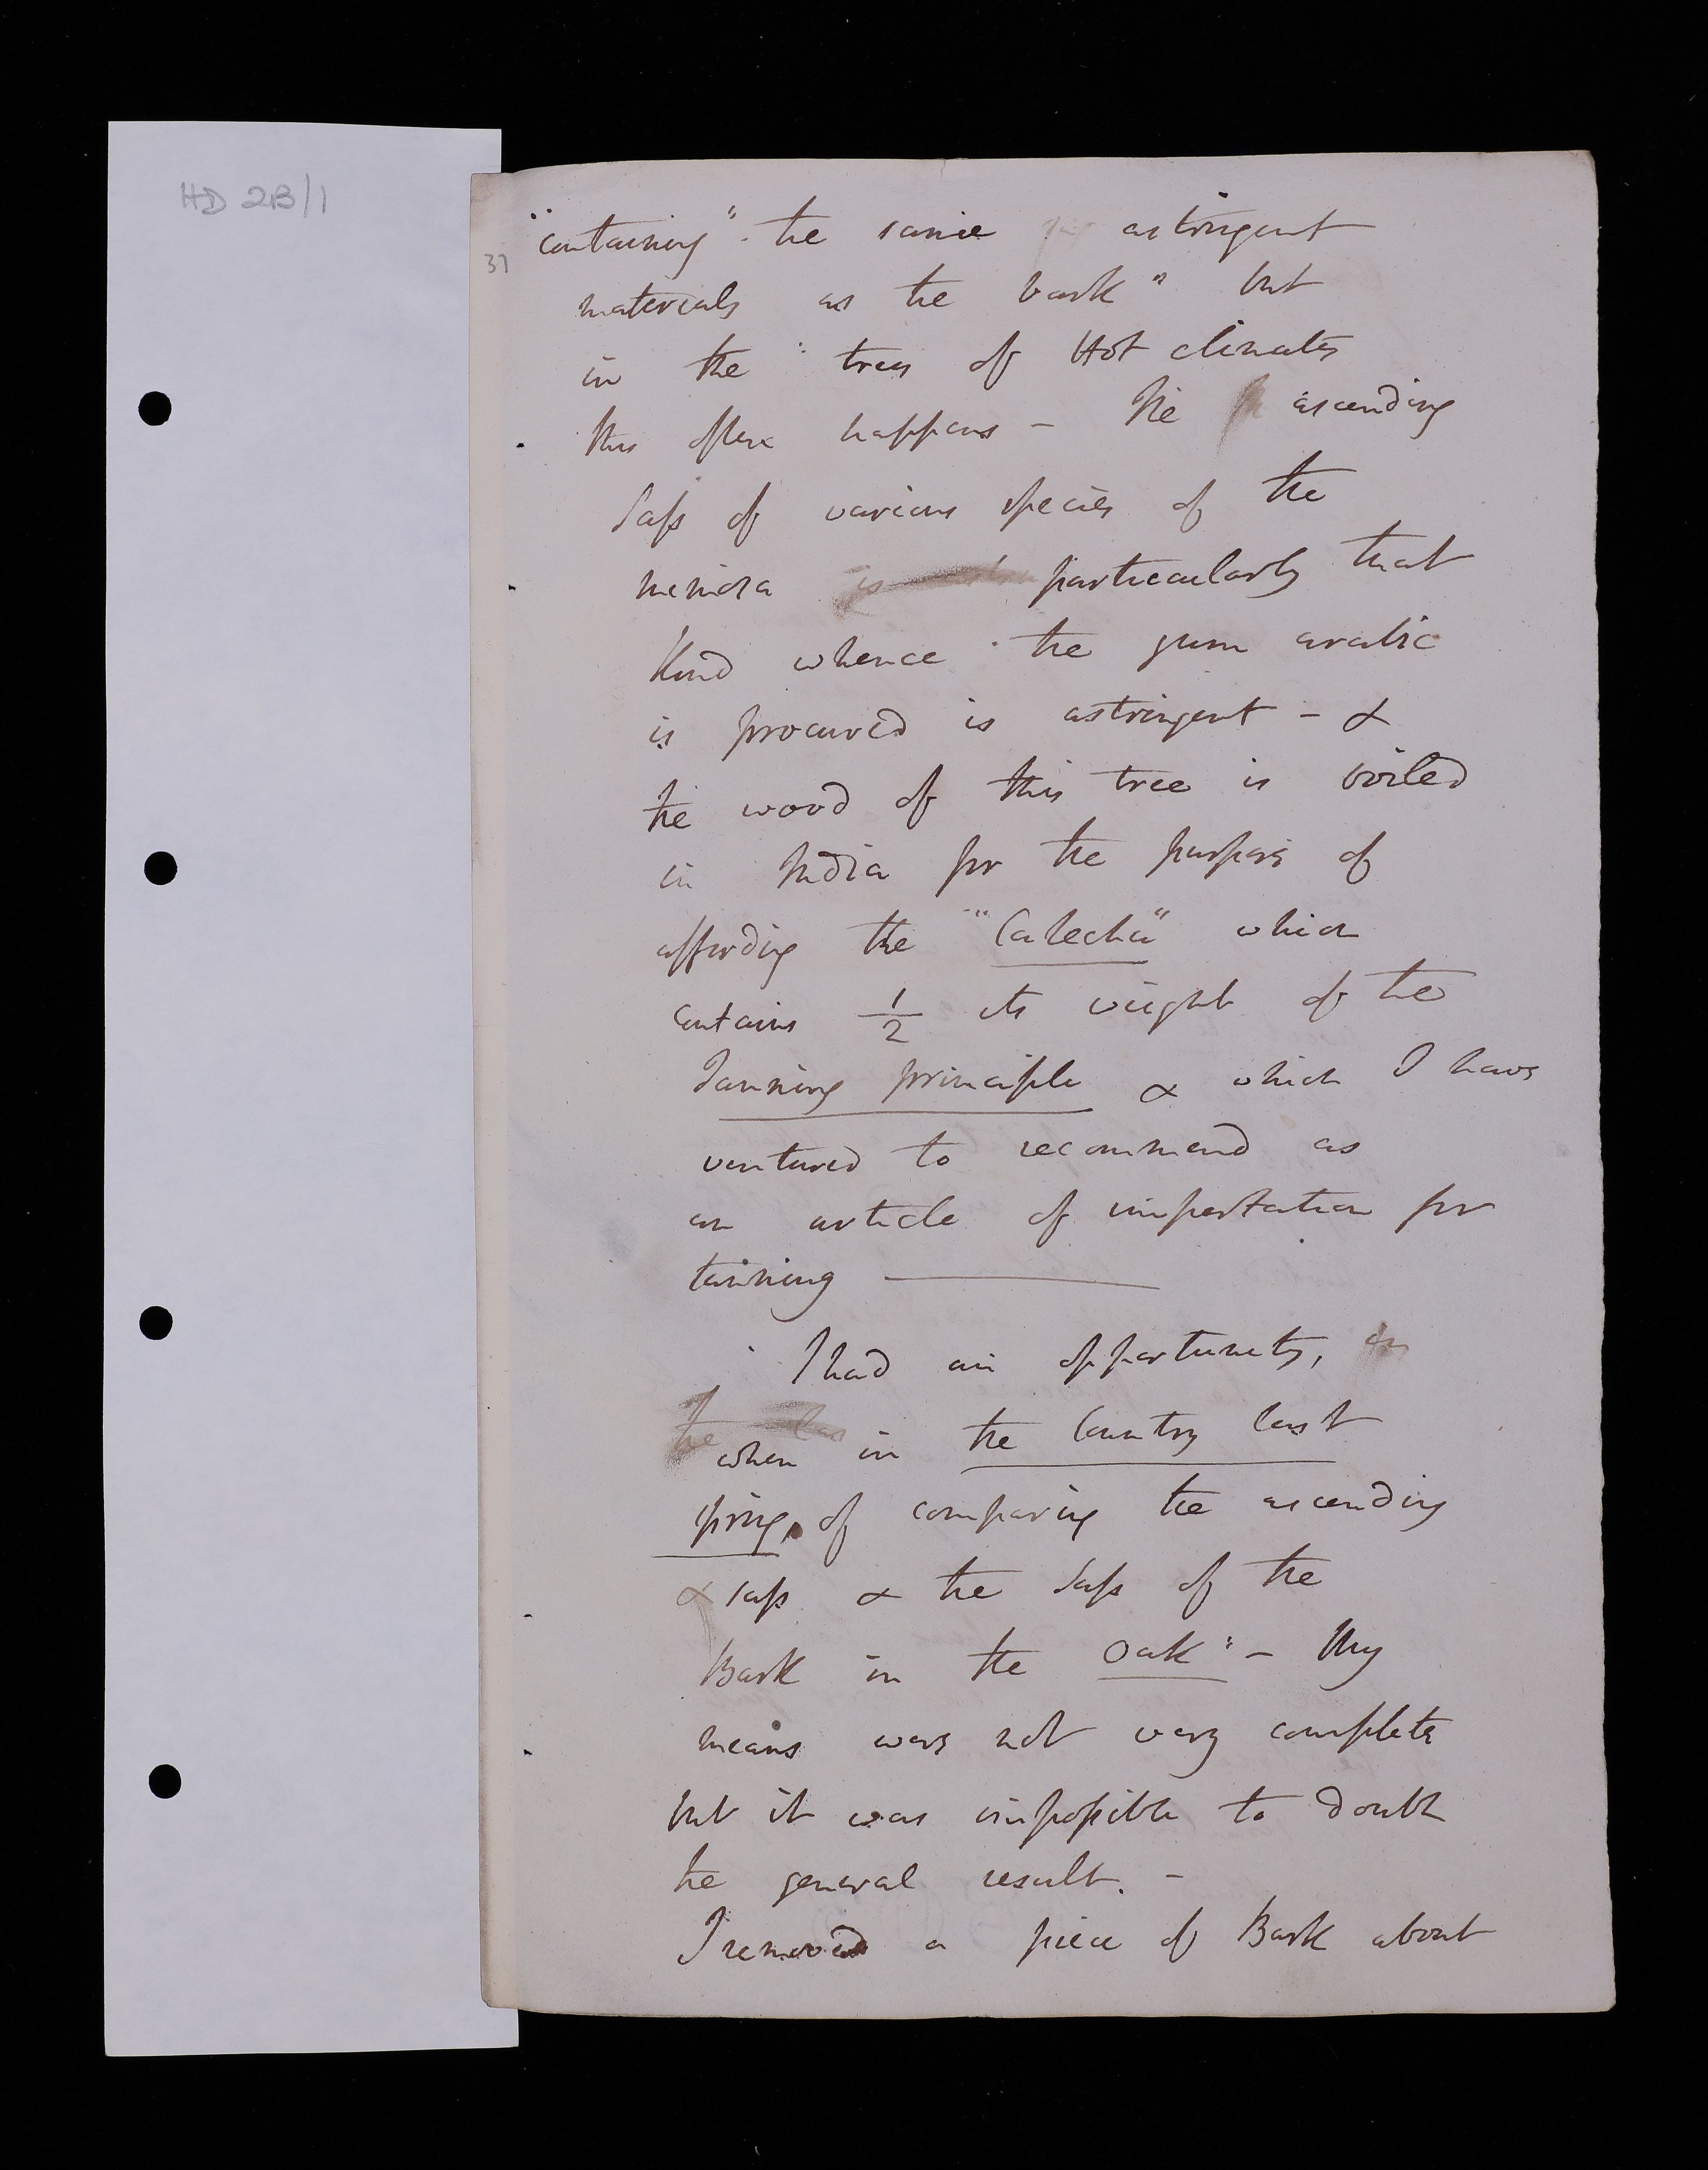 HD 2B/1
37
"containing" the same astringent
materials as the bark" but
in the trees of Hot climates
this often happens - The ascending
Sap of various species of the
mimosa particularly that
Kind whence the gum arabic
is procured is astringent - &
the wood of this tree is boiled
in India for the purpose of
affording the "Catechu" which
contains 1/2 its weight of the
Tanning principle & which I have
ventured to recommend as
an article of importation for
tanning ———
I had an opportunity,
when in the Country last
spring, of comparing the ascending
& sap & the Sap of the
Bark in the Oak" - My
means were not very complete
but it was impossible to doubt
the general result. -
I removed a piece of Bark about